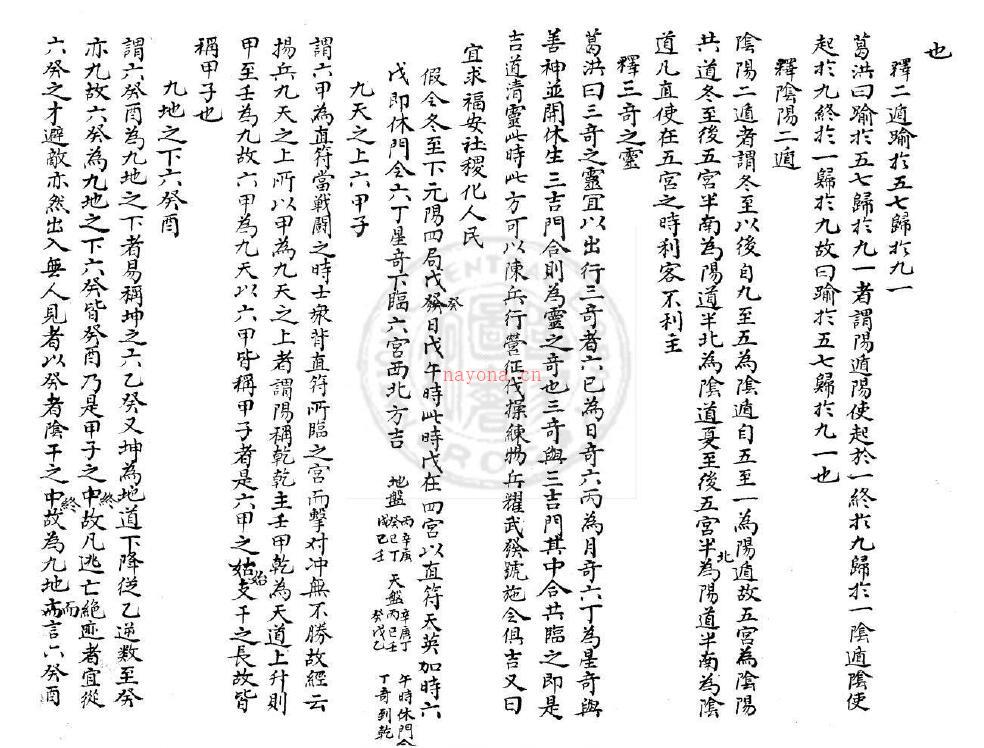 也
釋二遁踰於五七歸於九一
葛洪曰踰於五七歸於九一者謂陽遁陽使起於一終於九歸於一陰遁陰使
起於九終於一歸於九故曰踰於五七歸於九一也
釋陰陽二遁
陰陽二遁者謂冬至以後自九至五為陰遁自五至一為陽遁故五宮為陰陽
共道冬至後五宮半南為陽道半北為陰道夏至後五宮半北為陽道半南為陰
道凡直使在五宮之時利客不利主
釋三奇之靈
葛洪曰三奇之靈宜以出行三奇者六已為日奇六丙為月奇六丁為星奇與
善神並開休生三吉門合則為靈之奇也三奇與三吉門其中合共臨之即是
吉道清靈此時此方可以陳兵行營征伐操練物兵耀武發號施令俱吉又曰
宜求福安社稷化人民
假令冬至下元陽四局戊發癸日戊午時此時戊在四宮以直符天英加時六
戊即休門合六丁星奇下臨六宮西北方吉
地盤
丙辛庚
癸已丁
戊己壬
天盤
辛庚丁
丙已壬
癸戊乙
午時休門合
丁奇到乾
九天之上六甲子
謂六甲為直符當戰鬪之時士衆背直符所臨之宮而擊对冲無不勝故經云
揚兵九天之上所以甲為九天之上者謂陽稱乾乾主壬甲乾為天道上升則
甲至壬為九故六甲為九天以六甲皆稱甲子者是六甲之姑始支干之長故皆
稱甲子也
九地之下六癸酉
謂六癸酉為九地之下者易稱坤之六乙癸又坤為地道下降從乙逆数至癸
亦九故六癸為九地之下六癸皆癸酉乃是甲子之中終故凡逃亡絕迹者宜從
六癸之才避敵亦然出入無人見者以癸者陰干之中終故為九地而言六癸酉
nayona.cn